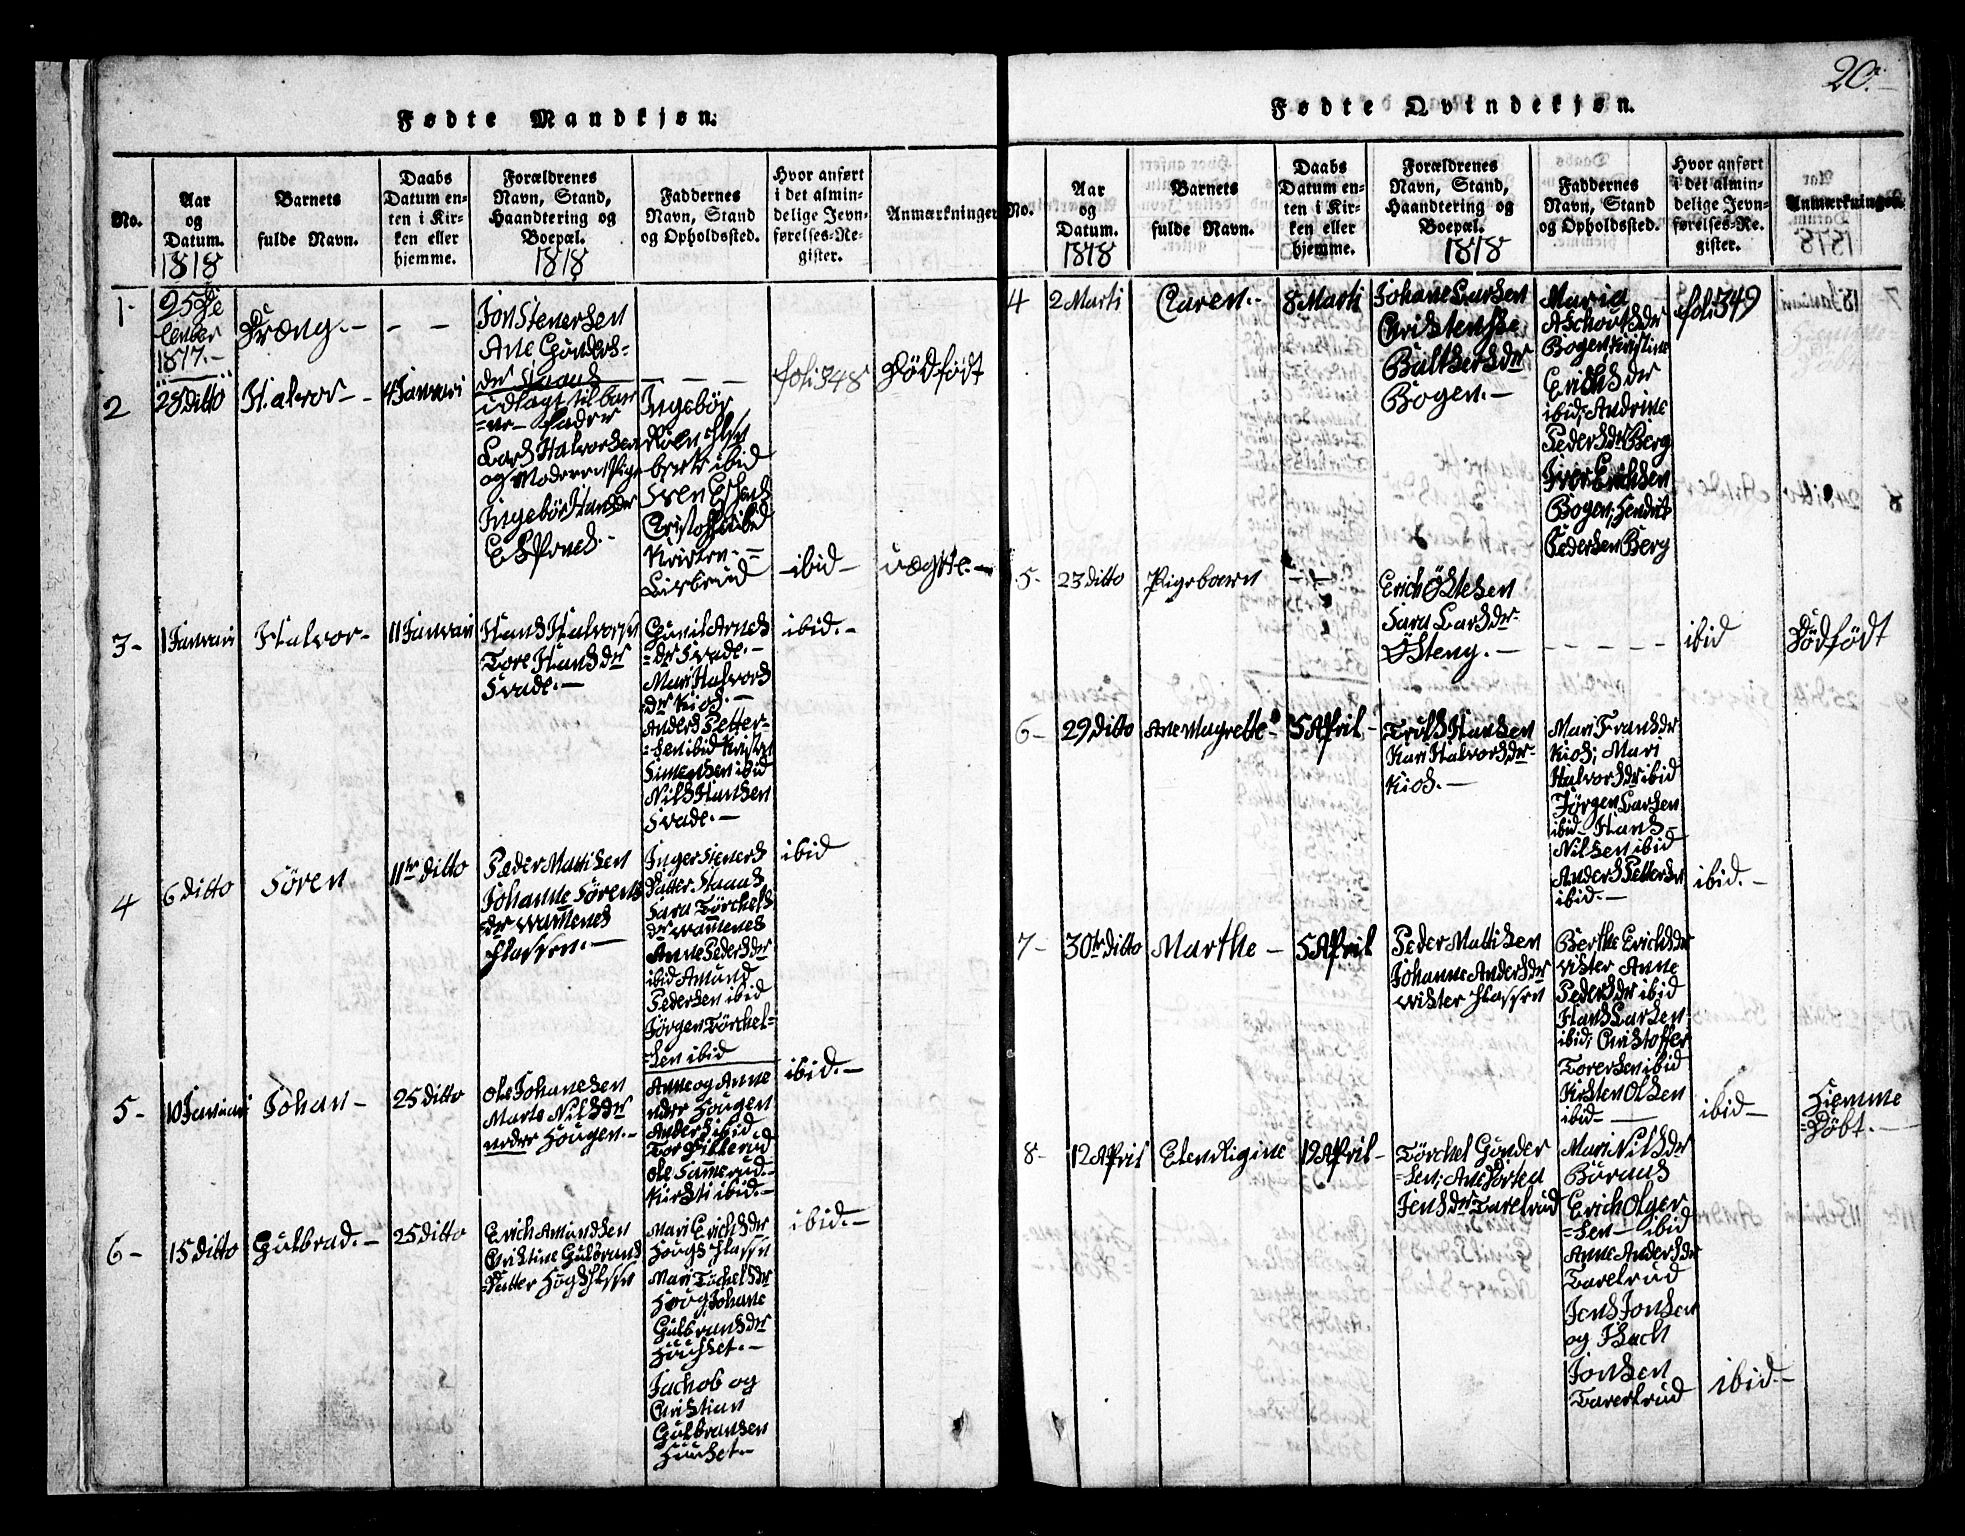 Fødte Mandkjøn.
No.
Aar
og
Datum.
1818
Barnets
fulde Navn.
Daabs
Datum en-
ten i Kir-
ken eller
hjemme.
Forældrenes
Navn, Stand,
Haandtering og
Boepæl.
1818
Faddernes
Navn, Stand
og Opholdssted.
Hvor anført
i det almin-
delige Jevn-
førelses-Re-
gister.
Anmærkninger
1-
1817.-
Dræng.-
Jon Stenersen
Ane Gunders-
der
foli 348
Dödfödt
2
28 ditto
Halvor-
4 Januari
udlagt til bar
=ne- Fader
Lars Halvorsen
og Moderen Pige
Ingebör Hansder
Ingebör
ibid
Sven
Kristen.-
ibid-
uægte.-
3-
1 Januari
Halvor-
11 Januari
Hans Halvorsn
Tore Hansder
Svade.-
Gunil Arnes
=der Svade.-
Mari Halvors
=der Kios.-
Anders Petter-
=sen ibid
Simensen ibid
Nils Hansen
Svade.-
ibid.-
4
6 ditto
Sören
11te ditto
Peder Mattisen
Johanne Sörens
=der
Plassen.-
Inger
Datter
Sara Törchels
der
Anne Pedersder
ibid Amund
Pedersen ibid
Jörgen Törchel=
=sen ibid
ibid
5-
10 Januari
Johan-
25 ditto
Ole Johanesen
Marte Nilsder
neder Hougen.-
Anne og Anne
neder Hougen
Anders ibid
Ole
Kirsti ibid.-
ibid.-
6-
15 ditto
Gulbrad.-
25 ditto
Erich Amundsen
Cristine Gulbrans
=Datter
Mari Erichsder
Mari Töchelsder
Houg, Johane
Gulbransder
Jachob og
Cristian
Gulbransen
ibid.-
20.-
Fødte Qvindekjøn.
No.
Aar
og
Datum.
1818
Barnets
fulde Navn.
Daabs
Datum en-
ten i Kir-
ken eller
hjemme.
Forældrenes
Navn, Stand,
Haandtering og
Boepæl.
1818
Faddernes
Navn, Stand
og Opholdssted.
Hvor anført
i det almin-
delige Jevn-
førelses-Re-
gister.
Anmærkninger.
4
2 Marti
Caren.-
8 Marti
Johane Larsen
Baltsersder
Bogen.-
Maria
Bogen, Kristine
Erichsder
ibid; Andrine
Pedersder Berg
Iver Erichsen
Bogen; Hendrik
Pedersen Berg
foli 349
5-
23 ditto
Pigebarn
Erich Östesen
Sara Larsder
Östeng.-
ibid
Dödfödt
6-
29 ditto
Ane Magrette-
5 April-
Truls Hansen
Kari Halvorsder-
Kios.-
Mari Fransder
Kios; Mari
Halvorsder ibid
Jörgen Larsen
ibid- Hans
Nilsen ibid
Anders Pettersen
ibid.-
ibid.-
7-
30te ditto
Marthe-
5 April
Peder Mattisen
Johanne Andersder
Vister Plassen
Berthe Erichsder
Vister Anne
Pedersder ibid
Hans Larsen
ibid; Cristoffer
Toversen ibid
Kirsten Olsen
ibid-
ibid-
Hiemme
=Döbt.-
8-
12 April
Elen Rigine
19 April-
Törchel Gunder
=sen; Ane Dortea
Jensder Tarelrud
Mari Nilsder
Buraas
Erich Olger
=sen- ibid
Anne Andersder
Tarelrud
Jens Jonsen
og Isach
Jonsen
Tarerlrud
ibid-